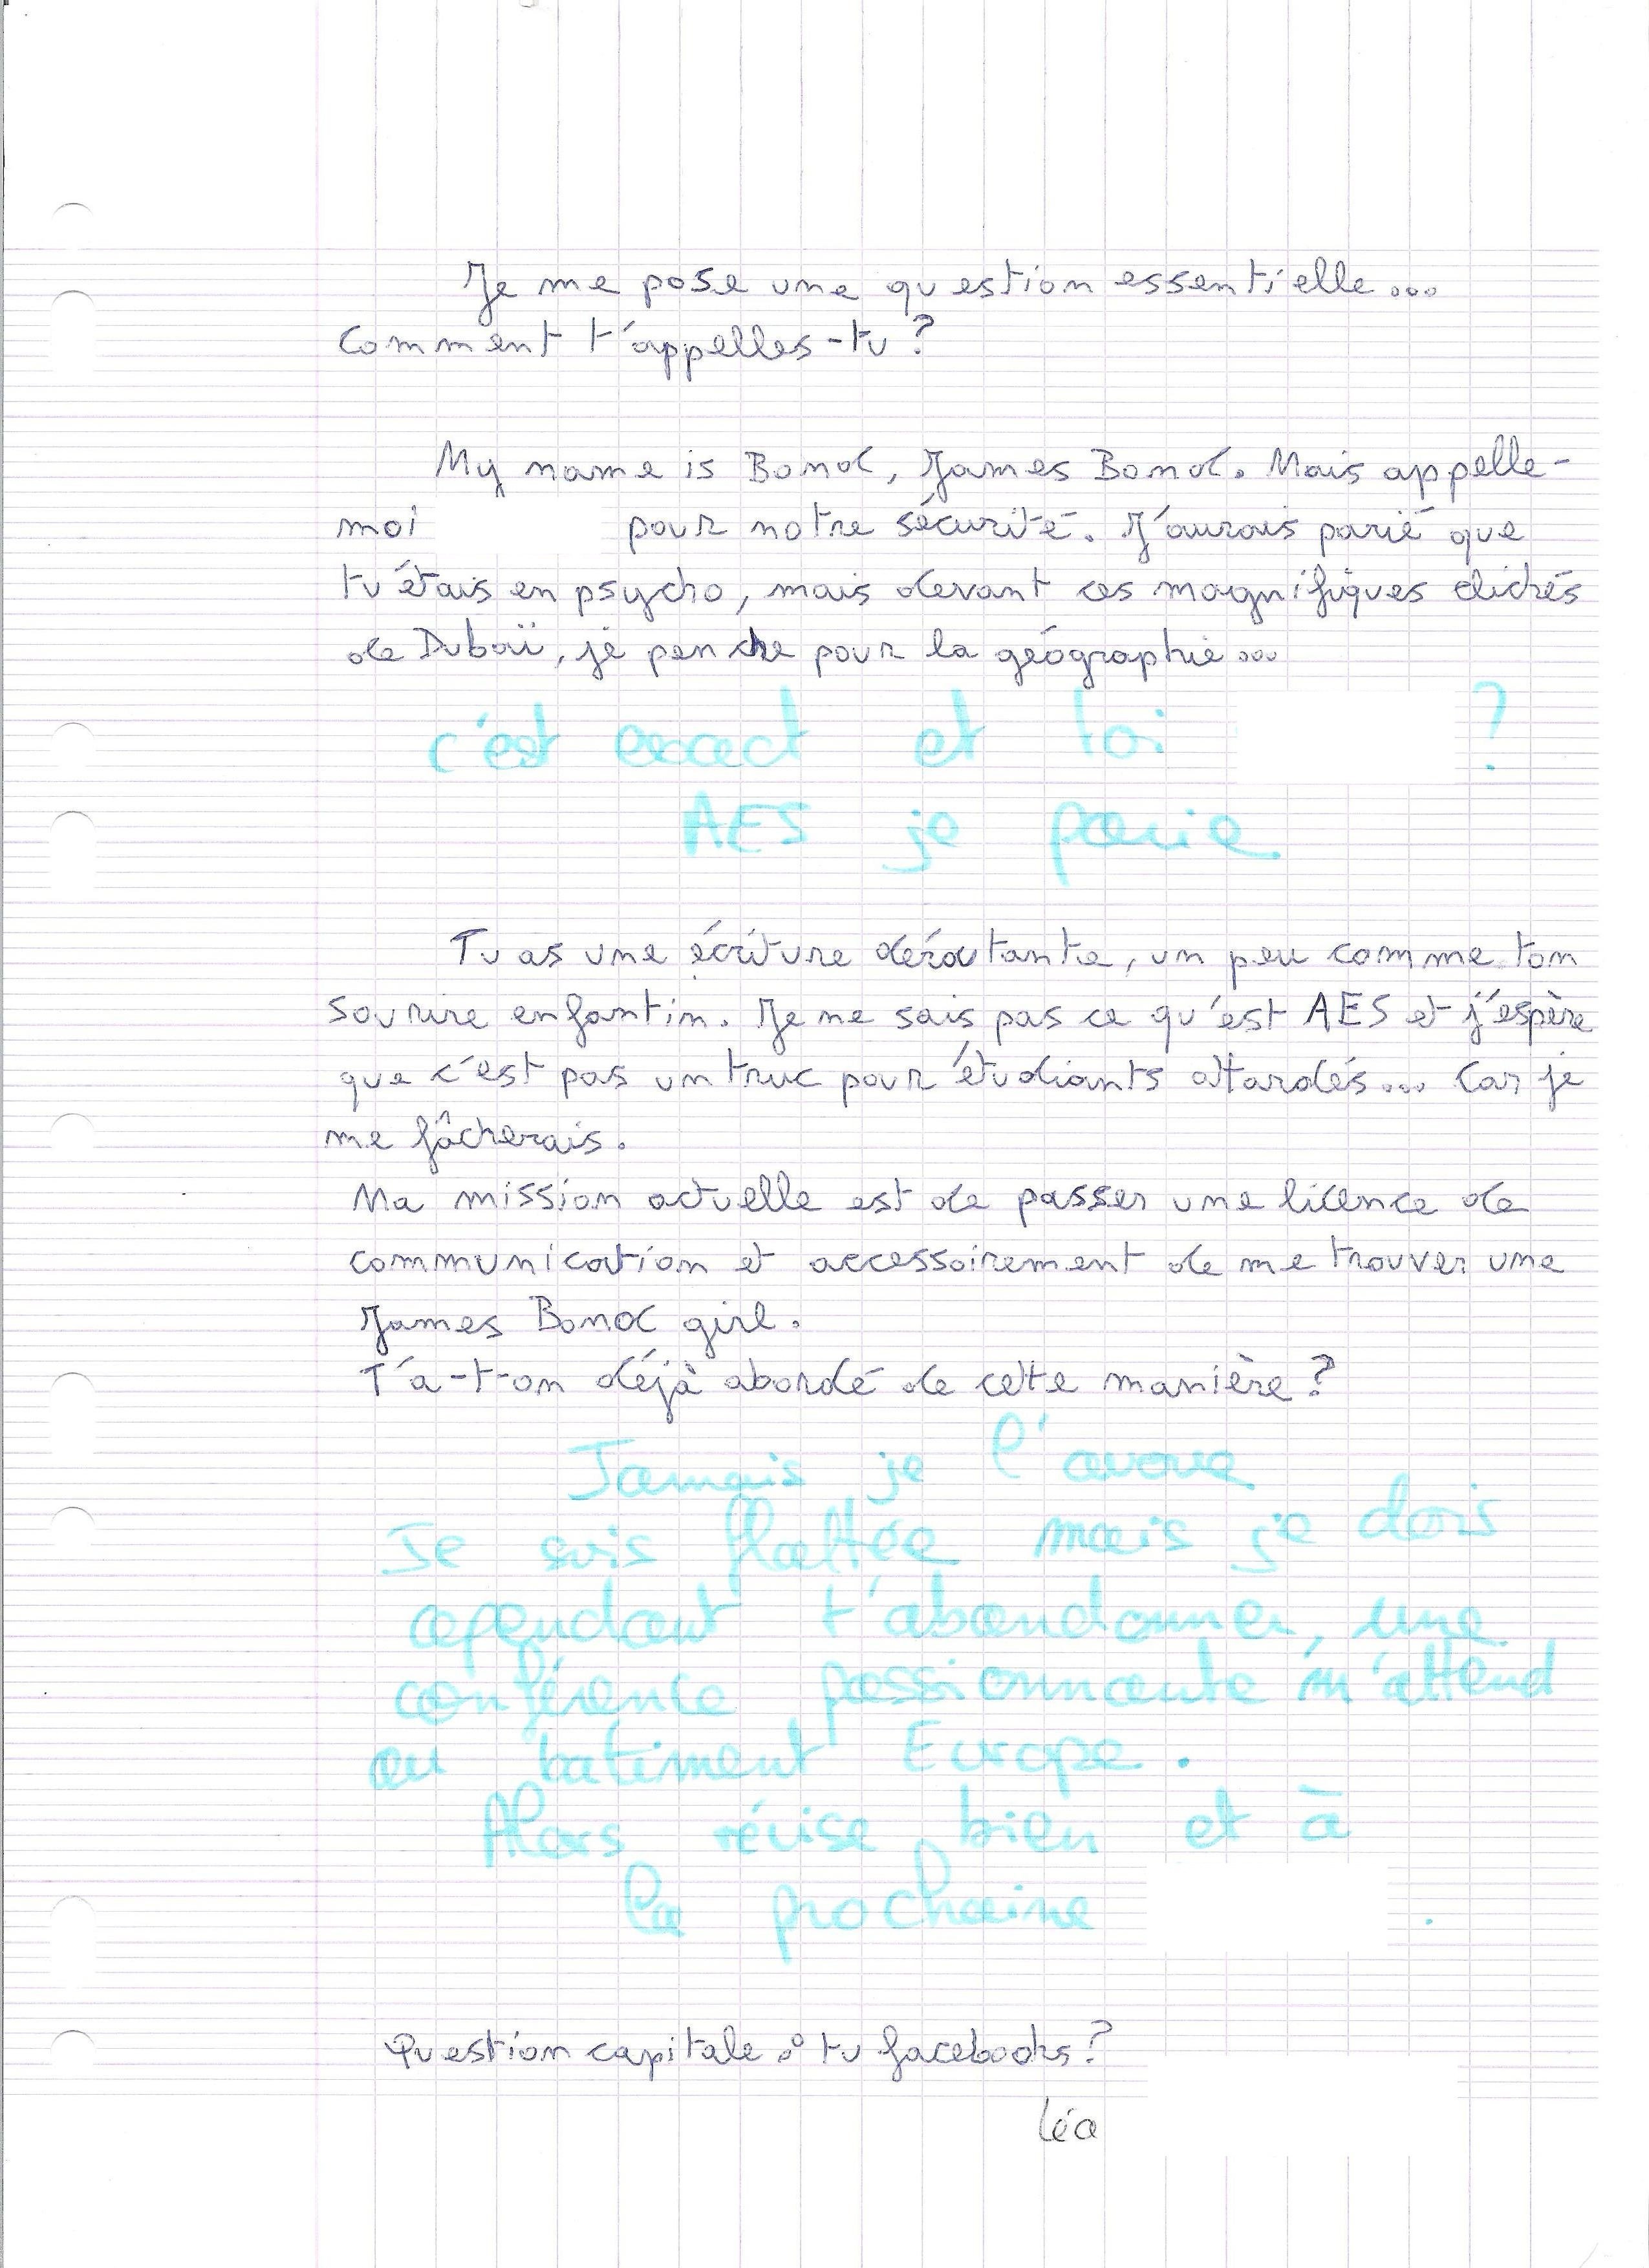 Je me pose une question essentielle...
Comment t'appelles-tu ?
My name is Bond, James Bond. Mais appelle-
moi pour notre sécurité. J'aurais parié que
tu étais en psycho, mais devant ces magnifiques clichés
de Dubaï, je penche pour la géographie...
c'est exact et toi ?
AES je parie
Tu as une écriture déroutante, un peu comme ton
sourire enfantin. Je ne sais pas ce qu'est AES et j'espère
que c'est pas un truc pour étudiants attardés... Car je
me fâcherais.
Ma mission actuelle est de passer une licence de
communication et accessoirement de me trouver une
James Bond girl.
T'a-t-on déjà abordé de cette manière ?
Jamais je l'avoue
Je suis flattée mais je dois
cependant t'abandonner, une
conférence passionnante m'attend
au batiment Europe.
Alors révise bien et à
la prochaine .
Question capitale : tu facebooks ?
Léa